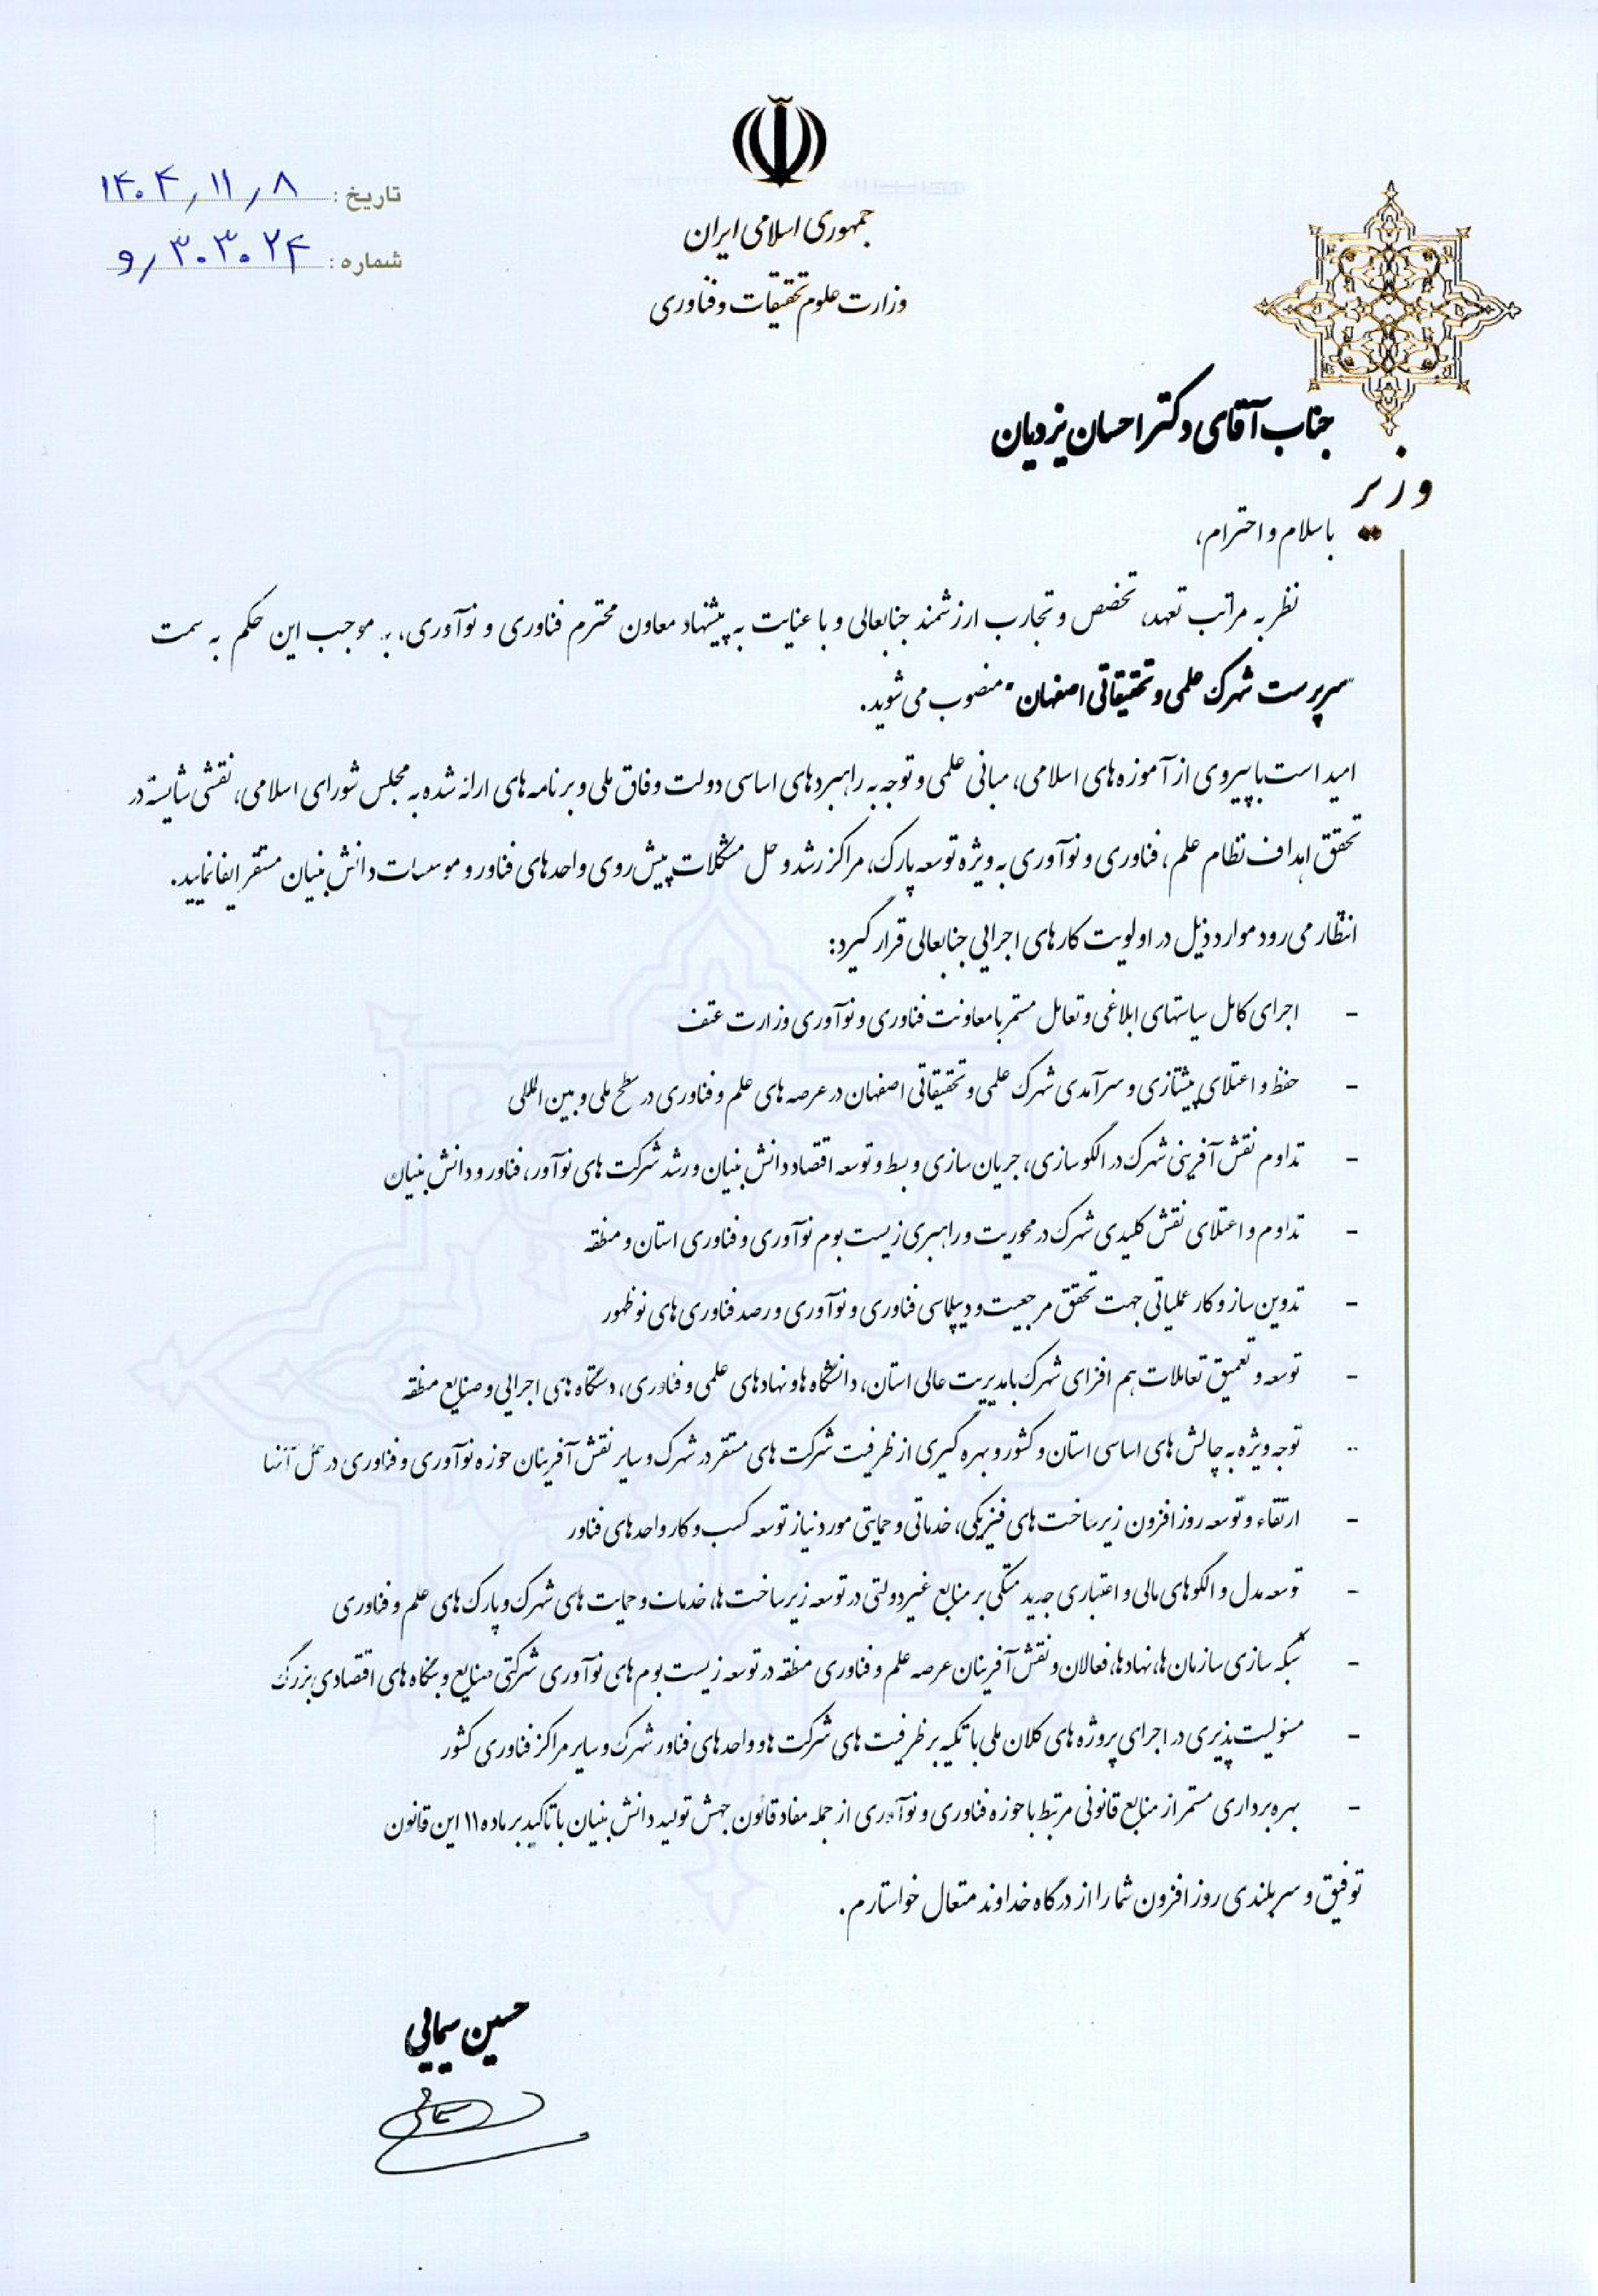 جمهوری اسلامی ایران
وزارت علوم تحقیقات و فناوری
تاریخ: ۱۴۰۴٫۱۱٫۸
شماره: ۳۰۳۰۲۴٫و
وزیر
جناب آقای دکتر احسان یزدیان
با سلام و احترام،
نظر به مراتب تعهد، تخصص و تجارب ارزشمند جنابعالی و با عنایت به پیشنهاد معاون محترم فناوری و نوآوری، به موجب این حکم به سمت
"سرپرست شهرک علمی و تحقیقاتی اصفهان" منصوب می‌شوید.
امید است با پیروی از آموزه‌های اسلامی، مبانی علمی و توجه به راهبردهای اساسی دولت وفاق ملی و برنامه‌های ارائه شده به مجلس شورای اسلامی، نقشی شایسته در
تحقق اهداف نظام علم، فناوری و نوآوری به ویژه توسعه پارک، مراکز رشد و حل مشکلات پیش روی واحدهای فناور و موسسات دانش بنیان مستقر ایفا نمایید.
انتظار می‌رود موارد ذیل در اولویت کارهای اجرایی جنابعالی قرار گیرد:
- اجرای کامل سیاستهای ابلاغی و تعامل مستمر با معاونت فناوری و نوآوری وزارت عتف
- حفظ و اعتلای پیشتازی و سرآمدی شهرک علمی و تحقیقاتی اصفهان در عرصه های علم و فناوری در سطح ملی و بین المللی
- تداوم نقش آفرینی شهرک در الگوسازی، جریان سازی و بسط و توسعه اقتصاد دانش بنیان و رشد شرکت های نوآور، فناور و دانش بنیان
- تداوم و اعتلای نقش کلیدی شهرک در محوریت و راهبری زیست بوم نوآوری و فناوری استان و منطقه
- تدوین ساز و کار عملیاتی جهت تحقق مرجعیت و دیپلماسی فناوری و نوآوری و رصد فناوری های نوظهور
- توسعه و تعمیق تعاملات هم افزای شهرک با مدیریت عالی استان، دانشگاه ها و نهادهای علمی و فناوری، دستگاه های اجرایی و صنایع منطقه
- توجه ویژه به چالش های اساسی استان و کشور و بهره گیری از ظرفیت شرکت های مستقر در شهرک و سایر نقش آفرینان حوزه نوآوری و فناوری در حل آنها
- ارتقاء و توسعه روزافزون زیرساخت های فیزیکی، خدماتی و حمایتی مورد نیاز توسعه کسب و کار واحدهای فناور
- توسعه مدل و الگوهای مالی و اعتباری جدید متکی بر منابع غیردولتی در توسعه زیرساخت ها، خدمات و حمایت های شهرک و پارک های علم و فناوری
- شبکه سازی سازمان ها، نهادها، فعالان و نقش آفرینان عرصه علم و فناوری منطقه در توسعه زیست بوم های نوآوری شرکتی صنایع و بنگاه های اقتصادی بزرگ
- مسئولیت پذیری در اجرای پروژه های کلان ملی با تکیه بر ظرفیت های شرکت ها و واحدهای فناور شهرک و سایر مراکز فناوری کشور
- بهره برداری مستمر از منابع قانونی مرتبط با حوزه فناوری و نوآوری از جمله مفاد قانون جهش تولید دانش بنیان با تاکید بر ماده ۱۱ این قانون
توفیق و سربلندی روزافزون شما را از درگاه خداوند متعال خواستارم.
حسین سیمایی